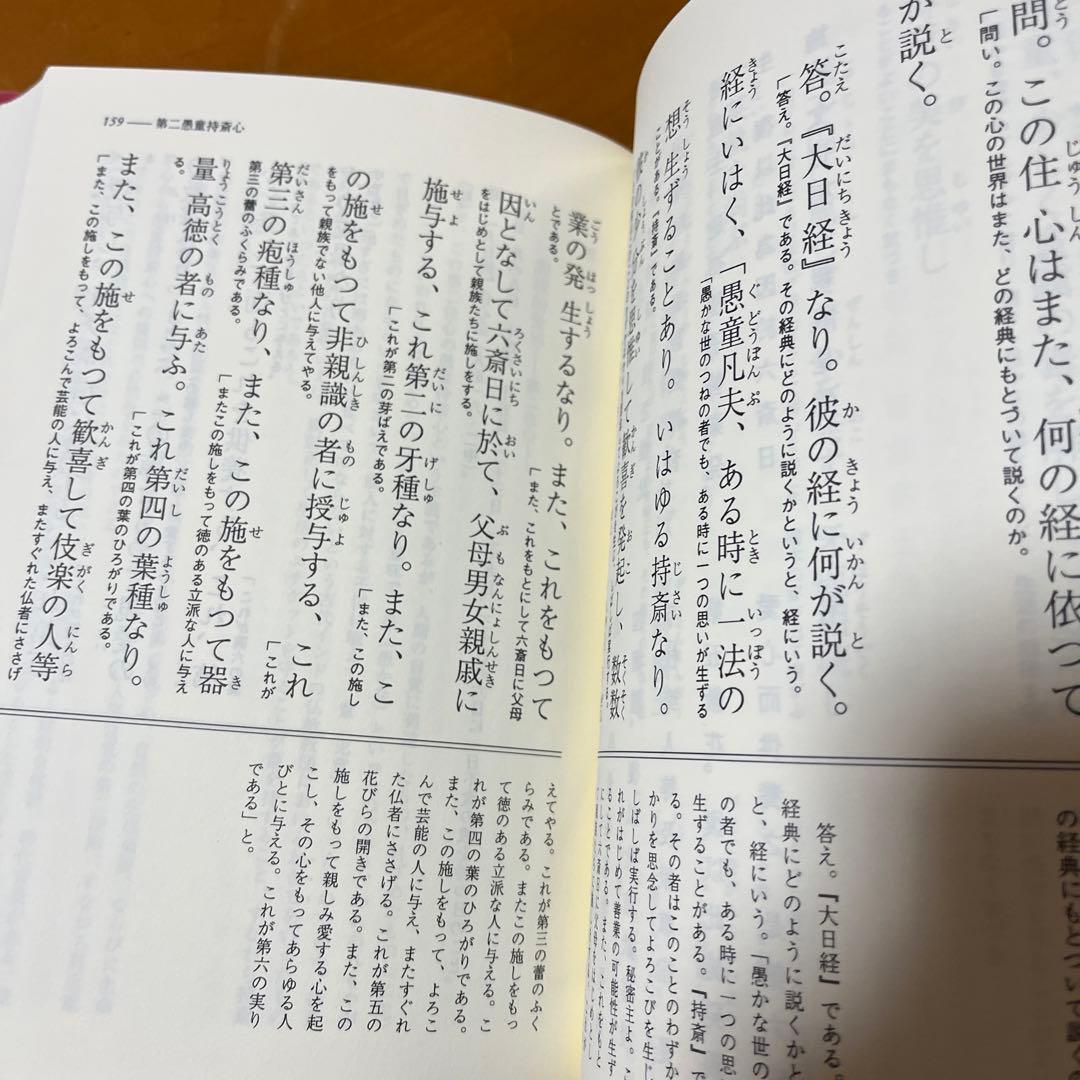 とう じゅうしん
問。この住心はまた、何の経に依つて
「問い。この心の世界はまた、どの経典にもとづいて説くのか。
と
が説く。
こたえ だいにちきょう か きょう いかん と
答。『大日経』なり。彼の経に何が説く。
「答え。『大日経』である。その経典にどのように説くかというと、経にいう。
きょう ぐどうぼんぷ とき いっぽう
経にいはく、「愚童凡夫、ある時に一法の
「愚かな世のつねの者でも、ある時に一つの思いが生ずる
そうしょう じさい
想生ずることあり。いはゆる持斎なり。
ことがある。『持斎』である。
かんぎ おこ そくそく
して歓喜を発起し、数数
の経典にもとづいて説くの
答え。『大日経』である。
経典にどのように説くかと
と、経にいう。「愚かな世の
の者でも、ある時に一つの思
生ずることがある。『持斎』で
る。その者はこのことのわずか
かりを思念してよろこびを生じ
しばしば実行する。秘密主よ。こ
れがはじめて善業の可能性が生ず
ることである。また、これをもと
159——第二愚童持斎心
ごう ほっしょう
業の発生するなり。また、これをもつて
とである。
「また、これをもとにして六斎日に父母
いん ろくさいにち おい ぶもなんにょしんせき
因となして六斎日に於て、父母男女親戚に
をはじめとして親族たちに施しをする。
せよ だいに げしゅ
施与する、これ第二の牙種なり。また、こ
「これが第二の芽ばえである。
「また、この施し
せ ひしんしき もの じゅよ
の施をもつて非親識の者に授与する、これ
をもって親族でない他人に与えてやる。
「これが
だいさん ほうしゅ せ
第三の疱種なり、また、この施をもつて器
き
第三の蕾のふくらみである。
「またこの施しをもって徳のある立派な人に与え
りょうこうとく もの あた だいし ようしゅ
量高徳の者に与ふ。これ第四の葉種なり。
る。
「これが第四の葉のひろがりである。
せ かんぎ ぎがく にんら
また、この施をもつて歓喜して伎楽の人等
「また、この施しをもって、よろこんで芸能の人に与え、またすぐれた仏者にささげ
えてやる。これが第三の蕾のふく
らみである。またこの施しをもっ
て徳のある立派な人に与える。こ
れが第四の葉のひろがりである。
また、この施しをもって、よろこ
んで芸能の人に与え、またすぐれ
た仏者にささげる。これが第五の
花びらの開きである。また、この
施しをもって親しみ愛する心を起
こし、その心をもってあらゆる人
びとに与える。これが第六の実り
である」と。